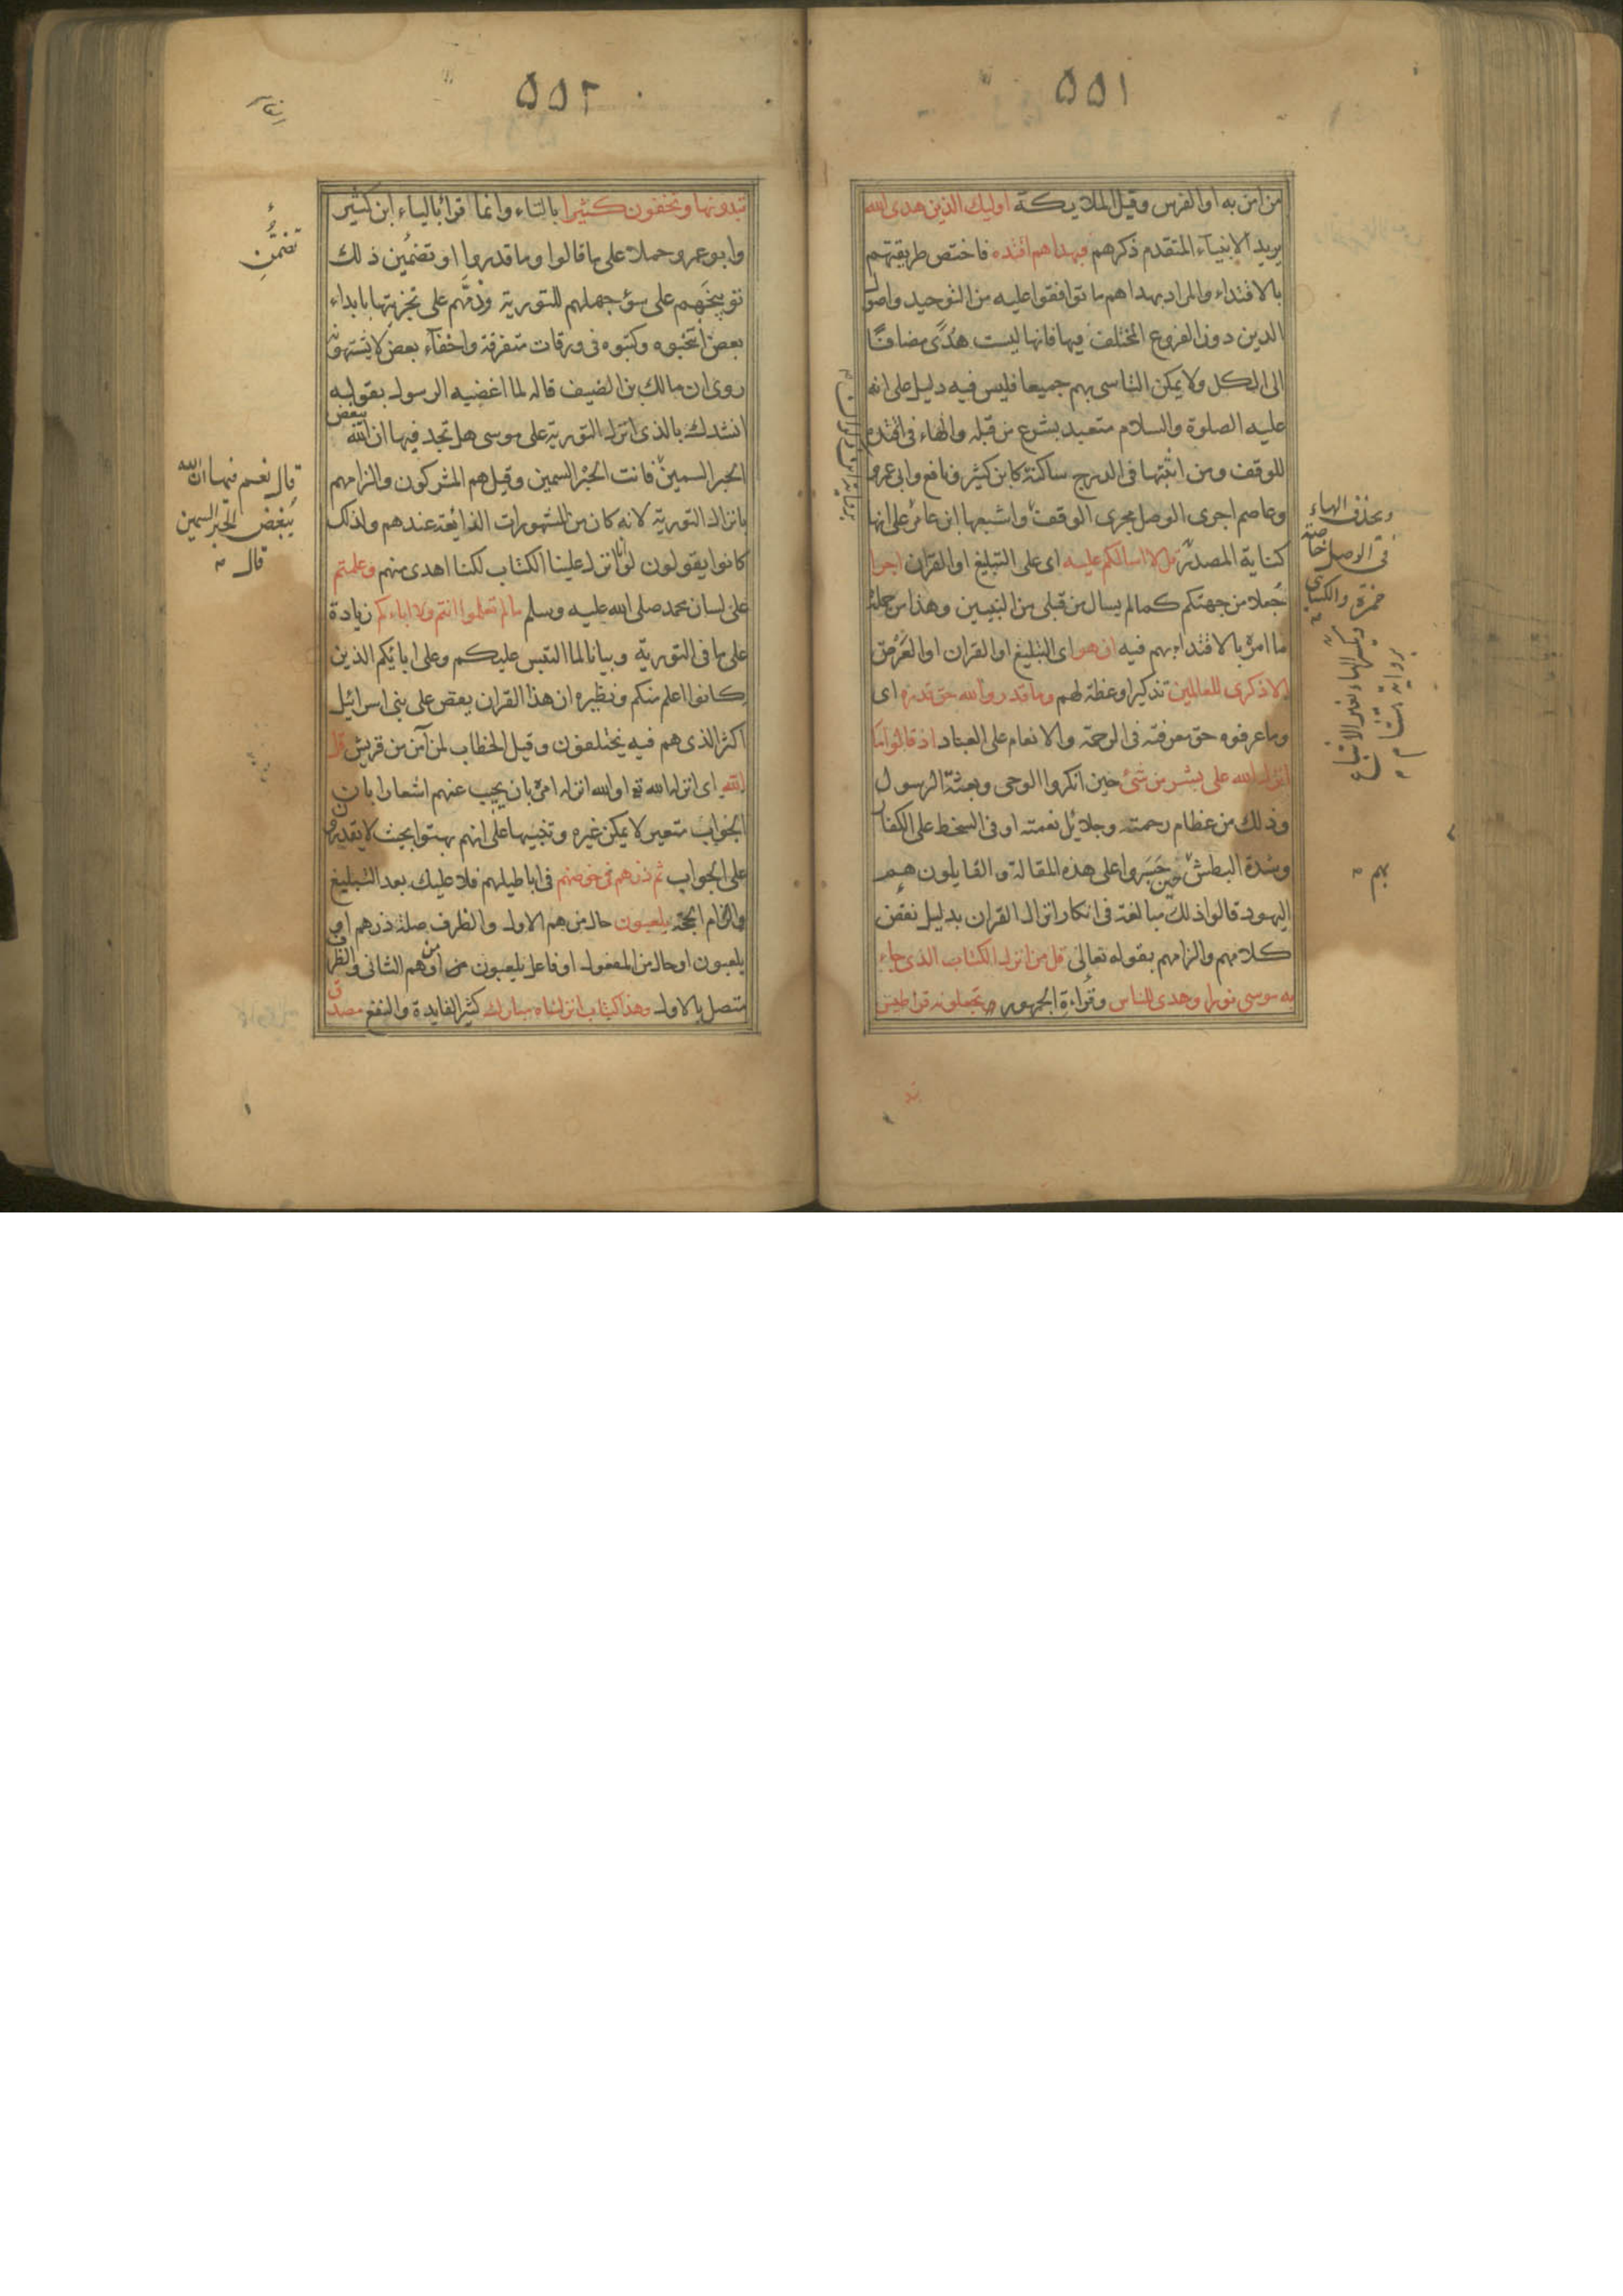 ٥٥١
من آمن به او الفرس وقيل الملايكة اوليك الذين هدى الله
يريد الانبياء المتقدم ذكرهم فبهداهم اقتده فاختص طريقتهم
بالاقتداء والمراد بهداهم ما توافقوا عليه من التوحيد واصول
الدين دون الفروع المختلف فيها فانها ليست هدًى مضافًا
الى الكل ولا يمكن التاسى بهم جميعا فليس فيه دليل على انه
عليه الصلوة والسلام متعبد بشرع من قبله والهاء فى اقتده
للوقف ومن اثبتها فى الدرج ساكنة كابن كثير ونافع وابى عمرو
وعاصم اجرى الوصل مجرى الوقف واشبعها ابن عامر على انها
كناية المصدر قل لا اسالكم عليه اى على التبليغ او القران اجرا
جُعلا من جهتكم كما لم يسال من قبلى من النبيين وهذا من جملة
ما امر بالاقتداء بهم فيه ان هو اى التبليغ او القران او الغرض
الا ذكرى للعالمين تذكيرا وعظة لهم وما قدروا الله حق قدره اى
وما عرفوه حق معرفته فى الرحمة والانعام على العباد اذ قالوا ما
انزل الله على بشر من شئ حين انكروا الوحى وبعثة الرسول
وذلك من عظام رحمته وجلائل نعمته او فى السخط على الكفار
وشدة البطش حين جسروا على هذه المقالة والقايلون هم
اليهود قالوا ذلك مبالغة فى انكار انزال القران بدليل نقض
كلامهم والزامهم بقوله تعالى قل من انزل الكتاب الذى جاء
به موسى نورا وهدى للناس وقراءة الجمهور تجعلونه قراطيس
ويحذف الهاء
فى الوصل خاصة
حمزة والكسائى
ويكسر الهاء بغير الاشباع
برواية هشام
بهم
٥٥٢
تبدونها وتخفون كثيرا بالتاء وانما قرأ بالياء ابن كثير
وابو عمرو حملا على ما قالوا وما قدروا او تضمين ذلك
توبيخهم على سوء جهلهم للتورية وذمّهم على تجزيتها بابداء
بعض انتخبوه وكتبوه فى ورقات متفرقة واخفاء بعض لا يشتهونه
روى ان مالك بن الضيف قاله لما اغضبه الرسول بقوله
انشدك بالذى انزل التورية على موسى هل تجد فيها ان الله يبغض
الحبر السمين فانت الحبر السمين وقيل هم المشركون والزامهم
بانزال التورية لانه كان من المشهورات الذايعة عندهم ولذلك
كانوا يقولون لو انا انزل علينا الكتاب لكنا اهدى منهم وعلمتم
على لسان محمد صلى الله عليه وسلم ما لم تعلموا انتم ولا اباءكم زيادة
على ما فى التورية وبيانا لما التبس عليكم وعلى ابايكم الذين
كانوا اعلم منكم ونظيره ان هذا القران يقص على بنى اسرائيل
اكثر الذى هم فيه يختلفون وقيل الخطاب لمن آمن من قريش قل
الله اى انزله الله او الله انزله امره بان يجيب عنهم اشعارا بان
الجواب متعين لا يمكن غيره وتنبيها على انهم بهتوا بحيث لا يقدرون
على الجواب ثم ذرهم فى خوضهم فى اباطيلهم فلا عليك بعد التبليغ
والزام الحجة يلعبون حال من هم الاول والظرف صلة ذرهم او
يلعبون او حال من المفعول او فاعل يلعبون او من هم الثانى والظرف
متصل بالاول وهذا كتاب انزلناه مبارك كثير الفايدة والنفع مصدق
تضمّن
قال نعم فيها ان الله
يبغض الحبر السمين
قال